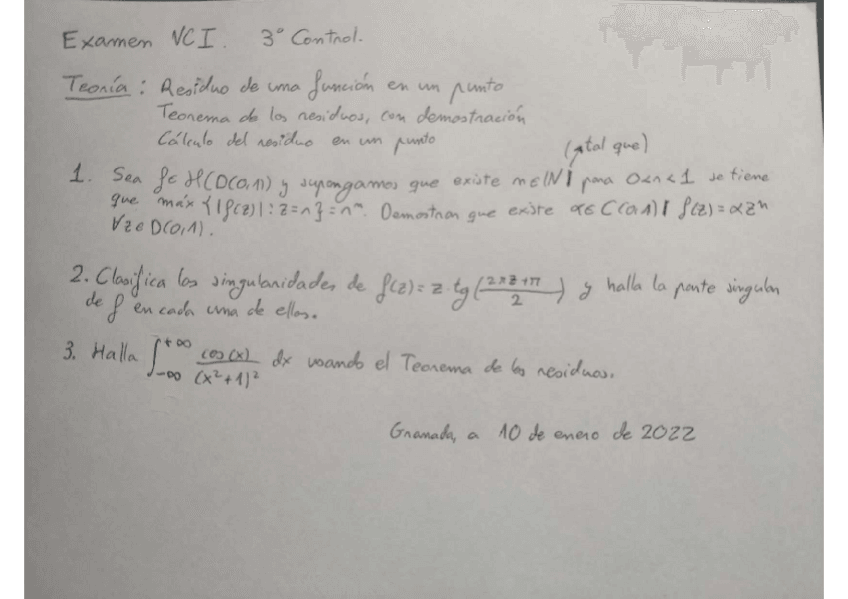 Examen VCI. 3º Control.
Teoría: Residuo de una función en un punto
Teorema de los residuos, con demostración
Cálculo del residuo en un punto
(tal que)
1. Sea f∈ℋ(D(0,1)) y supongamos que existe n∈ℕ | para 0<r<1 se tiene
que máx{|f(z)| : z=r}=rⁿ. Demostrar que existe α∈C(0,1) | f(z)=αzⁿ
∀z∈D(0,1).
2. Clasifica las singularidades de f(z)=z·tg((2πz+π)/2) y halla la parte singular
de f en cada una de ellas.
3. Halla ∫_{-∞}^{+∞} cos(x)/(x²+1)² dx usando el Teorema de los residuos.
Granada, a 10 de enero de 2022